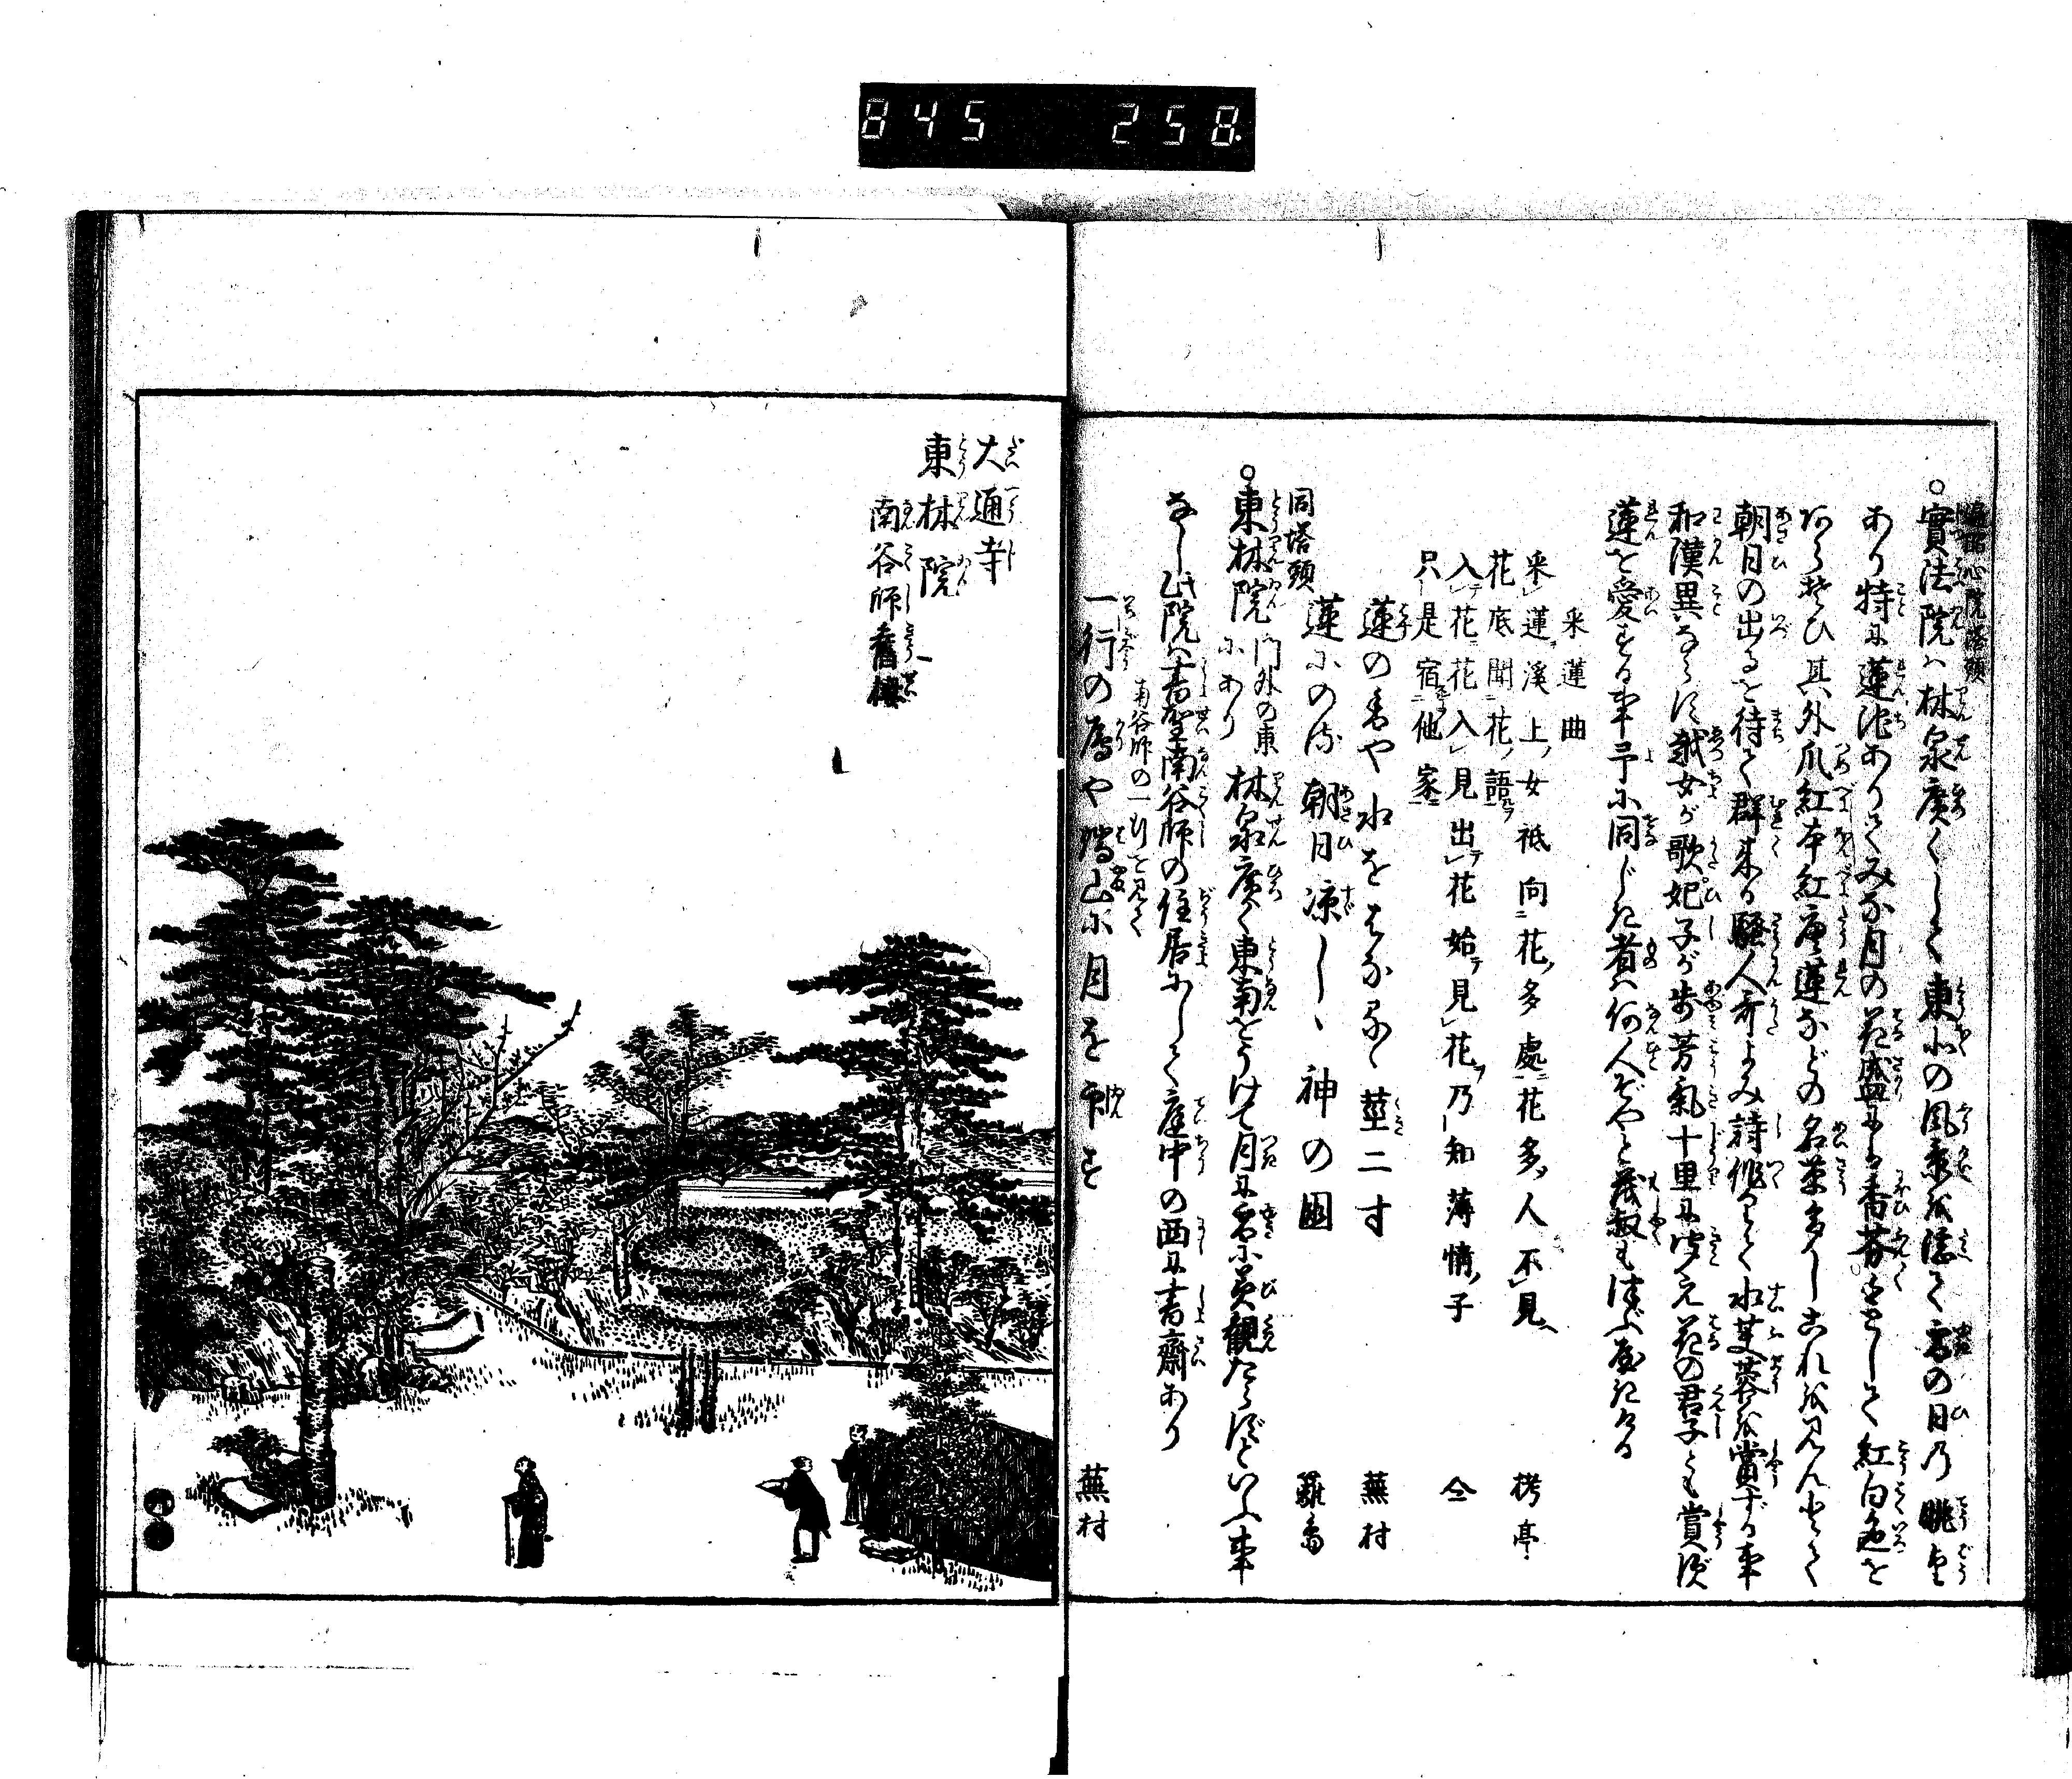 845 258
遍照心院塔頭
○實法院ハ林泉廣くして東北の風景を湛て雪の日乃眺望
あり特に蓮池ありてみな月の花盛にハ香芬として紅白色を
あらそひ其外爪紅本紅唐蓮などの名葉多しこれを見んとて
朝日の出るを待て群来る騒人哥よみ詩作りて水芙蓉を賞ずる事
和漢異ならず越女が歌妃子が歩芳氣十里に聞え花の君子とも賞ず
蓮を愛する事予に同じき者ハ何人ぞやと茂叔も
采蓮曲
采蓮溪上女 祗向花多處 花多人不見
花底聞花語 栲亭
入花花入見 出花始見花 乃知薄情子
只是宿他家 仝
蓮の香や水をはなるゝ莖二寸 蕪村
蓮にのみ朝日凉しゝ神の園 羅嶌
同塔頭
○東林院 門外の東にあり 林泉廣く東南をうけて月に雪に美觀たらずといふ事
なし此院ハ書聖南谷師の住居にして庭中の西に書齋あり
南谷師の一行を見て
一行の鴈や端山に月を印す 蕪村
大通寺
東林院
南谷師舊棲